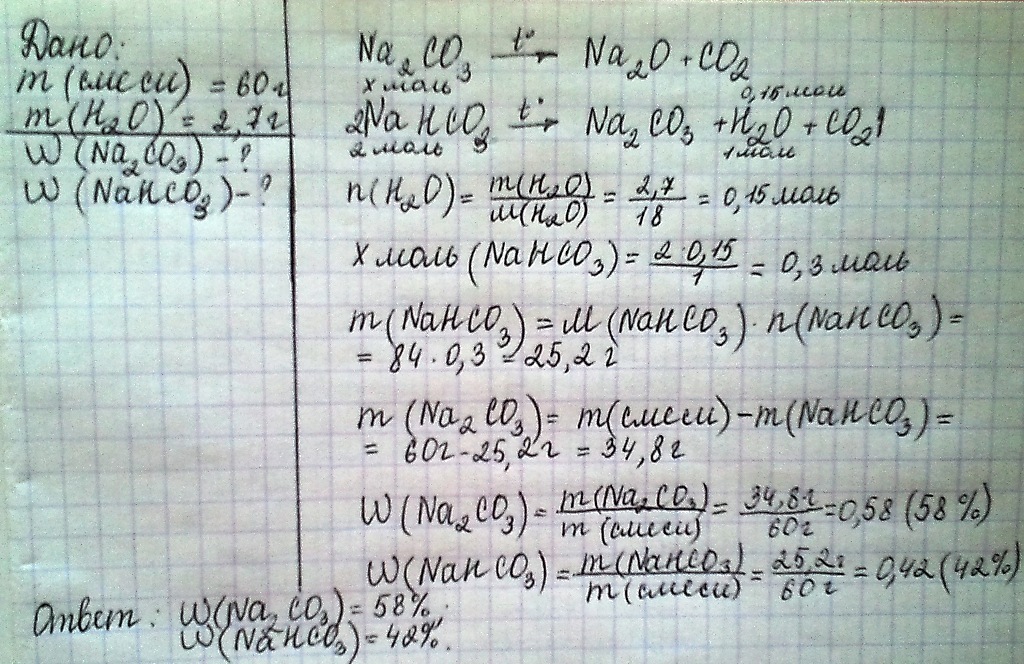 Дано:
m (смеси) = 60г
m (H₂O) = 2,7г
W (Na₂CO₃) - ?
W (NaHCO₃) - ?
Na₂CO₃ —t°→ Na₂O + CO₂
x моль 0,15 моль
2NaHCO₃ —t°→ Na₂CO₃ + H₂O + CO₂↑
2 моль 1 моль
n(H₂O) = m(H₂O)/M(H₂O) = 2,7/18 = 0,15 моль
x моль (NaHCO₃) = 2·0,15/1 = 0,3 моль
m (NaHCO₃) = M (NaHCO₃) · n(NaHCO₃) =
= 84 · 0,3 = 25,2 г
m (Na₂CO₃) = m(смеси) - m(NaHCO₃) =
= 60г - 25,2г = 34,8г
W (Na₂CO₃) = m(Na₂CO₃)/m (смеси) = 34,8г/60г = 0,58 (58%)
W (NaHCO₃) = m(NaHCO₃)/m(смеси) = 25,2г/60г = 0,42 (42%)
Ответ: W(Na₂CO₃) = 58%.
W(NaHCO₃) = 42%.